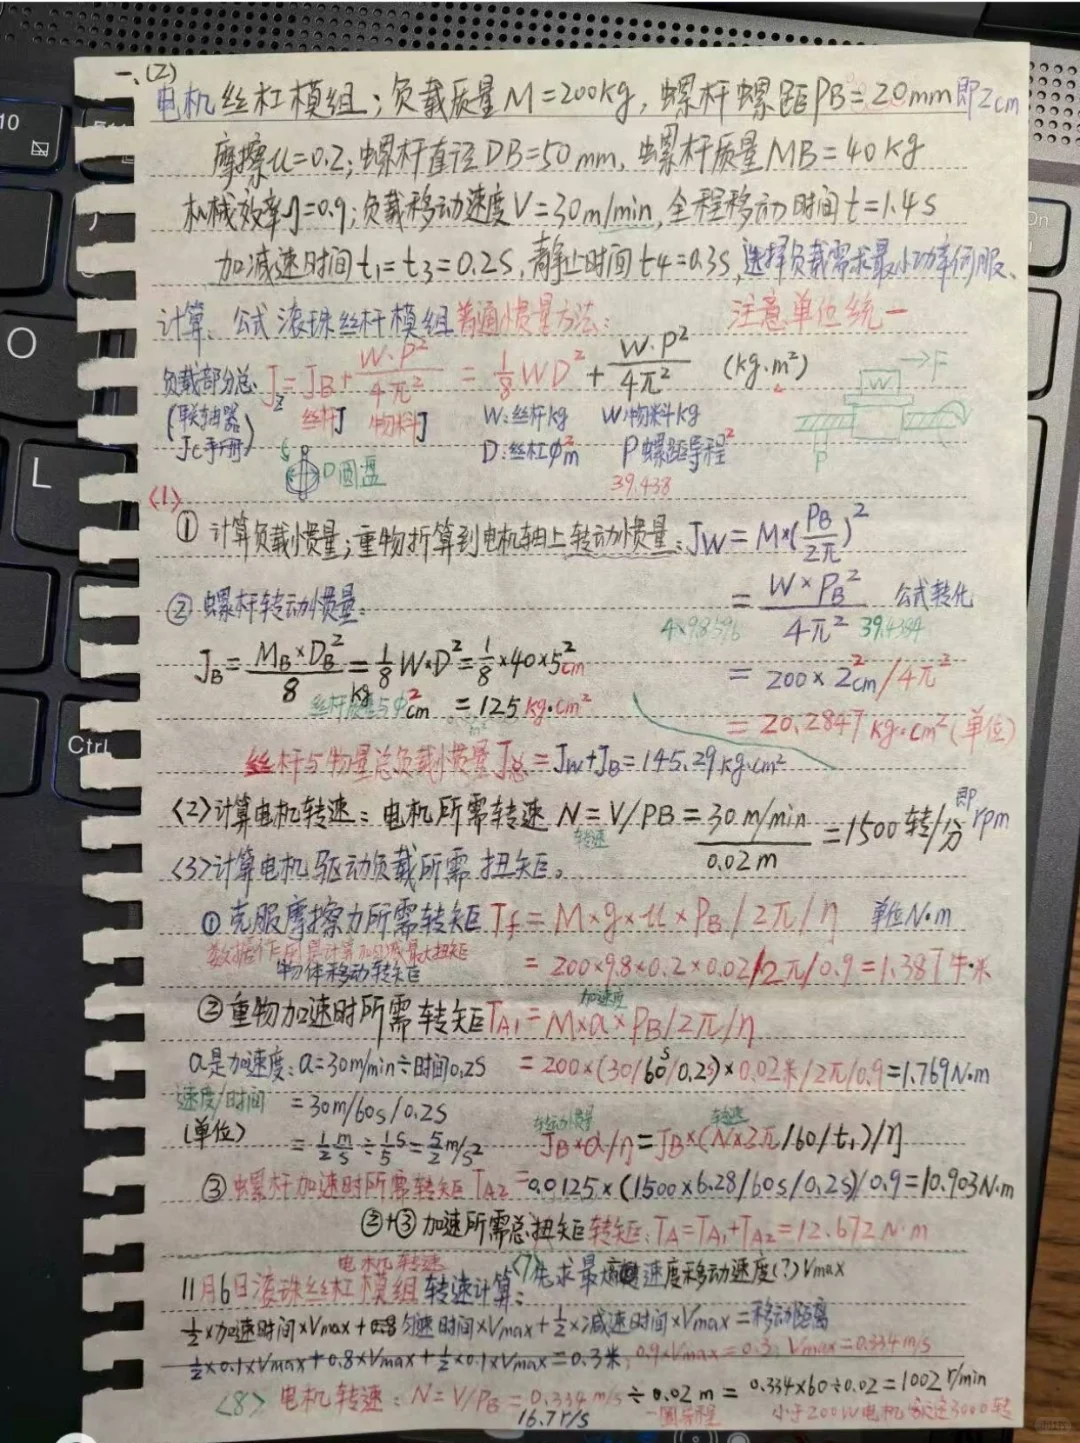 一、(2)
电机丝杠模组；负载质量M=200kg，螺杆螺距PB=20mm即2cm
摩擦u=0.2；螺杆直径DB=50mm，螺杆质量MB=40kg
机械效率η=0.9；负载移动速度V=30m/min，全程移动时间t=1.4s
加减速时间t₁=t₃=0.2s，静止时间t4=0.3s，选择负载需求最小功率伺服、
计算、公式滚珠丝杆模组普通惯量方法：注意单位统一
负载部分总 J_Z=J_B+W·P²/4π² = 1/8WD²+W·P²/4π² (kg·m²)
→F
W
(联轴器 丝杆J 物料J W:丝杆kg W物料kg
Jc手册) D圆盘 D:丝杠φm² P螺距导程²
P
39.438
<1>
①计算负载惯量；重物折算到电机轴上转动惯量：JW=M×(PB/2π)²
②螺杆转动惯量： =W×PB²/4π² 公式转化
4×9.8596 39.4384
JB=MB×DB²/8=1/8W×D²=1/8×40×5²cm =200×2²cm/4π²
kg
丝杆质量与φ²cm =125kg·cm² =20.2847kg·cm²(单位)
丝杆与物量总负载惯量J总=JW+JB=145.29kg·cm²
<2>计算电机转速：电机所需转速N=V/PB=30m/min/0.02m=1500转/分即rpm
转速
<3>计算电机驱动负载所需扭矩。
①克服摩擦力所需转矩Tf=M×g×u×PB/2π/η 单位N·m
物体移动转矩 =200×9.8×0.2×0.02/2π/0.9=1.387牛·米
加速度
②重物加速时所需转矩TA1=M×a×PB/2π/η
a是加速度：a=30m/min÷时间0.2S =200×(30/60s/0.2s)×0.02米/2π/0.9=1.769N·m
速度/时间 =30m/60s/0.2s
转动惯量 转速
(单位) =1/2m/s÷1/5s=5/2m/s² JB×α/η=JB×(N×2π/60/t₁)/η
③螺杆加速时所需转矩TA2=0.0125×(1500×6.28/60s/0.2s)/0.9=10.903N·m
②+③加速所需总扭矩转矩：TA=TA1+TA2=12.672N·m
电机转速
11月6日滚珠丝杠模组转速计算：<7>先求最 速度移动速度(?)Vmax
1/2×加速时间×Vmax+0.8匀速时间×Vmax+1/2×减速时间×Vmax=移动距离
1/2×0.1×Vmax+0.8×Vmax+1/2×0.1×Vmax=0.3米，0.9×Vmax=0.3；Vmax=0.334m/s
<8>电机转速：N=V/PB=0.334m/s÷0.02m=0.334×60÷0.02=1002r/min
16.7r/s 一圈导程 小于200W电机 3000转